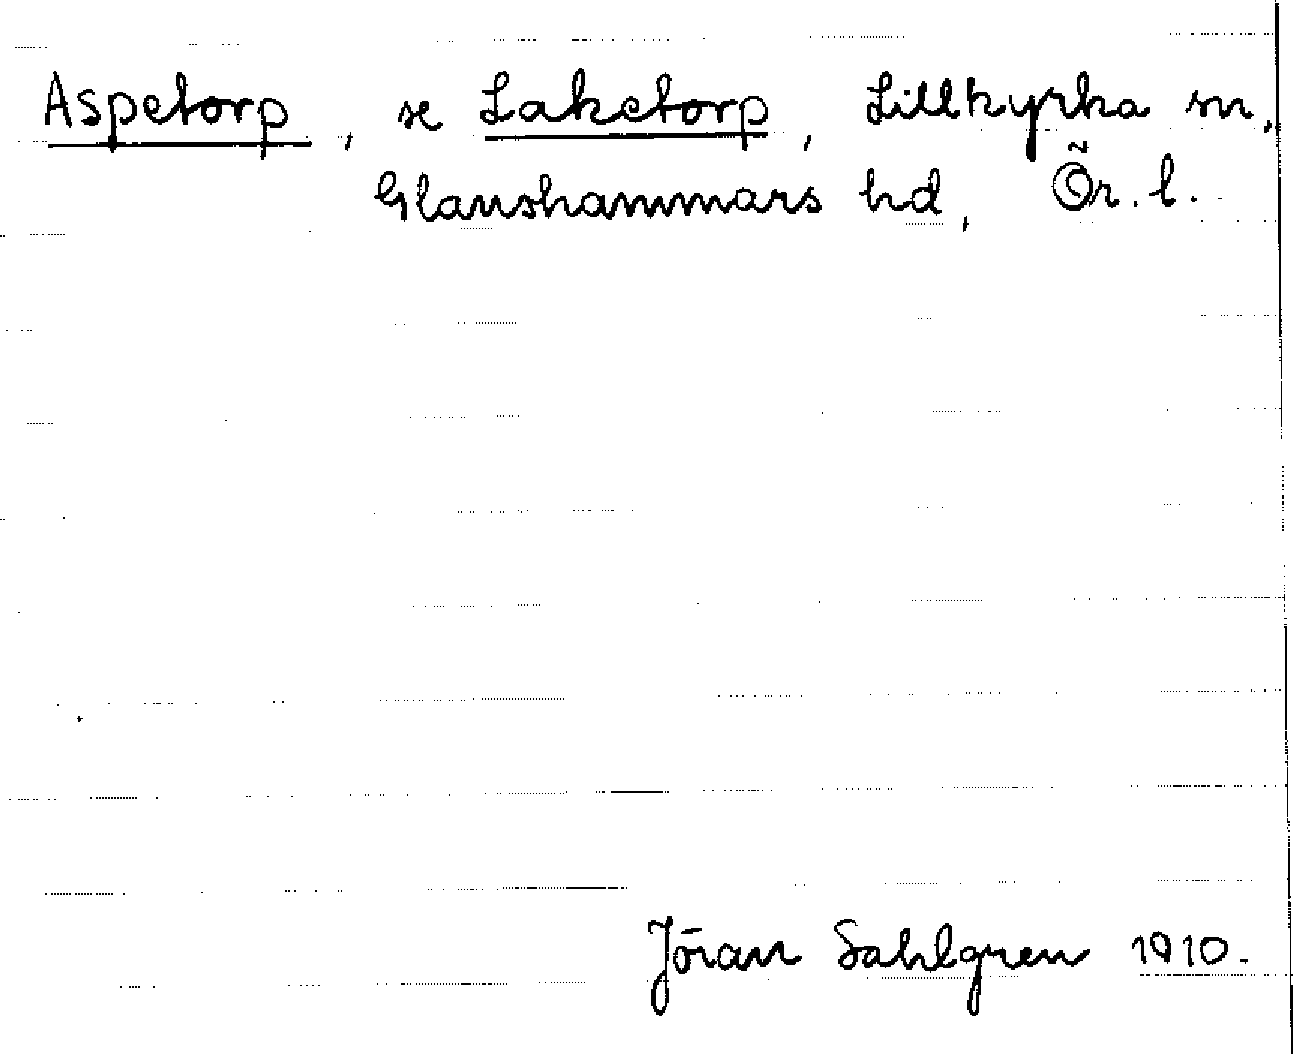 Aspetorp, se Laketorp, Lillkyrka sn,
Glanshammars hd, Ör. l.
Jöran Sahlgren 1910.